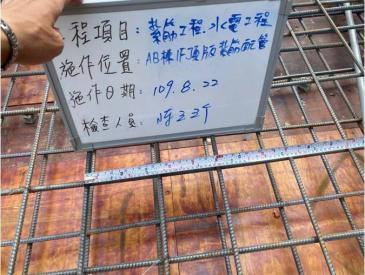 工程項目：裝飾工程.水電工程
施作位置：AB棟作頂版裝飾配管
施作日期：109.8.22
檢查人員：